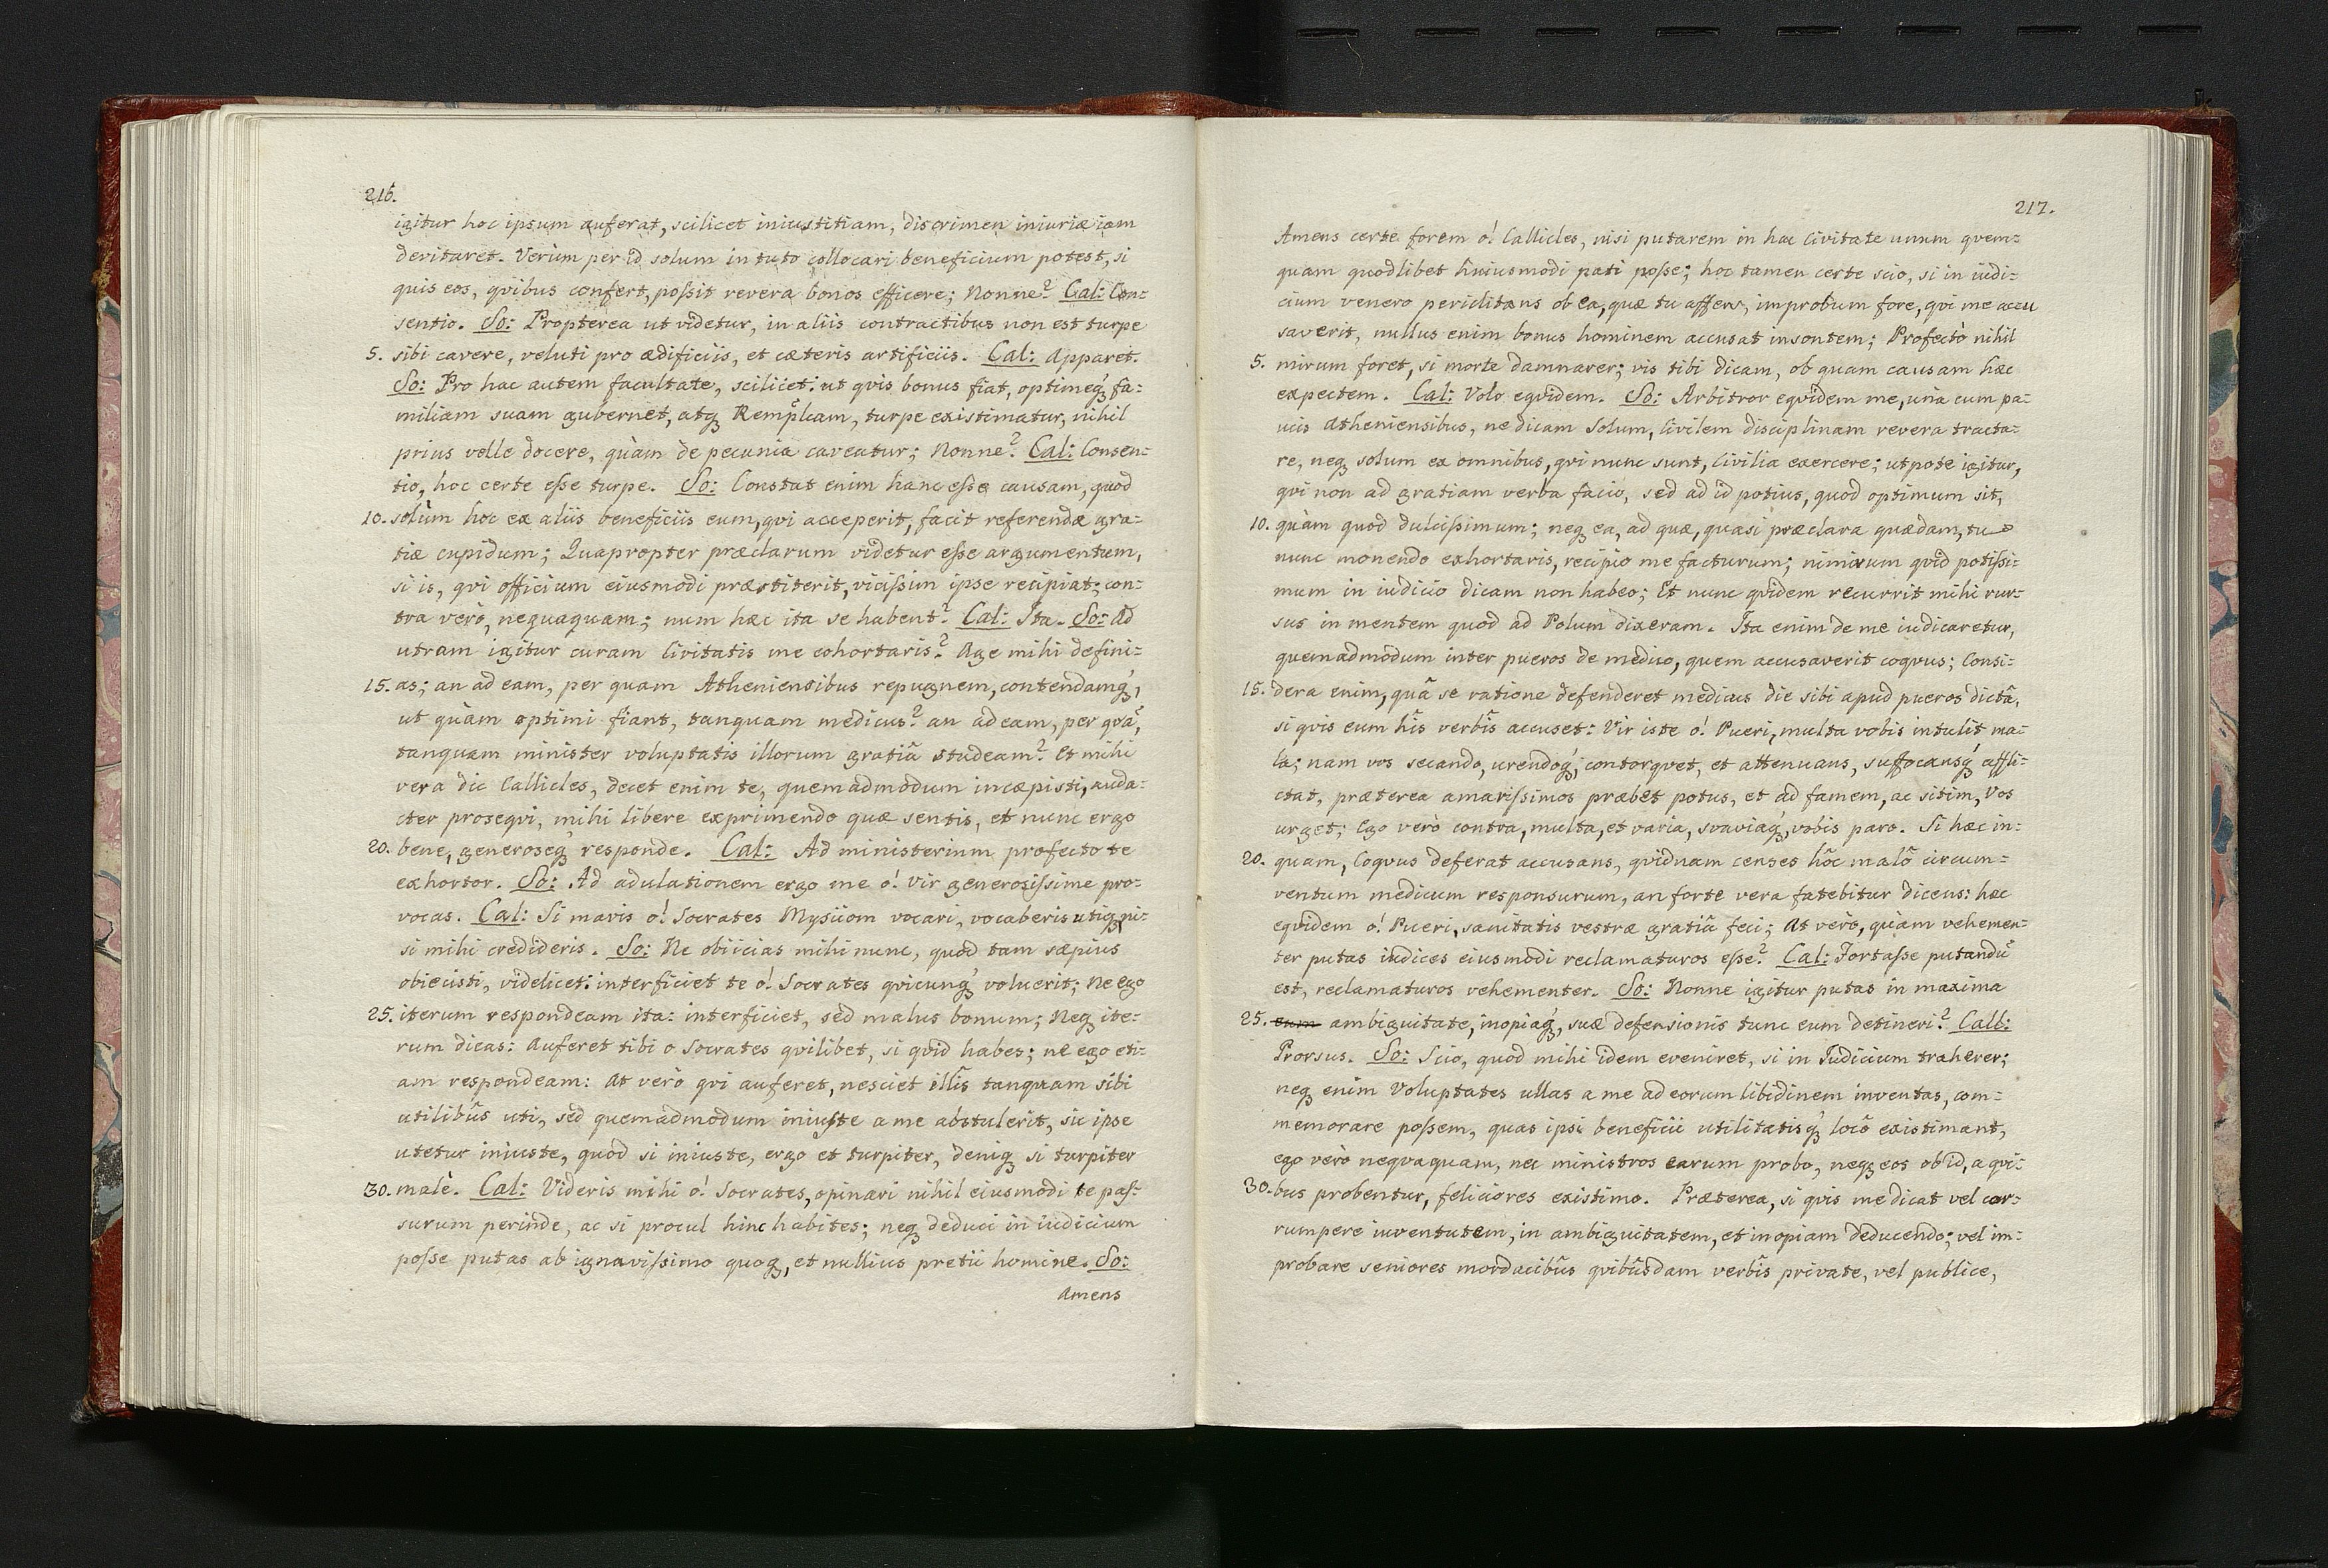 216.
igitur hoc ipsum auferat, scilicet iniustitiam, discrimen iniuriæ iam
devitaret. Verùm per id solum in tuto collocari beneficium potest, si
quis eos, qvibus confert, possit revera bonos efficere; Nonne? Cal: Con=
sentio. So: Propterea ut videtur, in aliis contractibus non est turpe
5. sibi cavere, veluti pro ædificiis, et cæteris artificiis. Cal: Apparet.
So: Pro hac autem facultate, scilicet: ut qvis bonus fiat, optimeq́ꝫ fa=
miliam suam gubernet, atqꝫ Rempl̃cam, turpe existimatur, nihil
prius velle docere, qùam de pecunia caveatur; Nonne? Cal: Consen=
tio, hoc certe esse turpe. So: Constat enim hanc esse causam, quod
10. solùm hoc ex aliis beneficiis eum, qvi acceperit, facit referendæ gra=
tiæ cupidum; Quapropter præclarum videtur esse argumentum,
si is, qvi officium eiusmodi præstiterit, vicissim ipse recipiat; con=
tra verò, nequaquam; num hæc ita se habent? Cal: Ita. So: Ad
utram igitur curam Civitatis me cohortaris? Age mihi defini=
15. as; an ad eam, per quam Atheniensibus repugnem, contendamq́ꝫ,
ut qùam optimi fiant, tanquam medicus? an ad eam, per qvã,
tanquam minister voluptatis illorum gratiâ studeam? Et mihi
vera dic Callicles, decet enim te, quemadmodum incæpisti, auda=
cter proseqvi, mihi libere exprimendo quæ sentis, et nunc ergo
20. bene, generoseq́ꝫ responde. Cal: Ad ministerium profecto te
exhortor. So: Ad adulationem ergo me o! Vir generosissime pro=
vocas. Cal: Si mavis o! Socrates Mysiiom vocari, vocaberis utiqꝫ, ni=
si mihi credideris. So: Ne obiicias mihi nunc, quod tam sæpius
obiecisti, videlicet: interficiet te o! Socrates qvicunq́ꝫ voluerit; Ne ego
25. iterum respondeam ita: interficiet, sed malus bonum; Neqꝫ ite=
rum dicas: Auferet tibi o Socrates qvilibet, si qvid habes; ne ego eti=
am respondeam: At verò qvi auferet, nesciet illîs tanquam sibi
utilibûs uti, sed quemadmodum iniuste a me abstulerit, sic ipse
utetur iniuste, quod si iniuste, ergo et turpiter, deniqꝫ si turpiter
30. malè. Cal: Videris mihi o! Socrates, opinari nihil eiusmodi te pas=
surum perinde, ac si procul hinc habites; neqꝫ deduci in iudicium
posse putas ab ignavissimo quoqꝫ, et nullius pretii homine. So:
Amens
217.
Amens certe forem o! Callicles, nisi putarem in hac Civitate unum qvem=
quam quodlibet huiusmodi pati posse; hoc tamen certe scio, si in iudi=
cium venero periclitans ob ea, quæ tu affers, improbum fore, qvi me accu
saverit, nullus enim bonus hominem accusat insontem; Profectò nihil
5. mirum foret, si morte damnarer; vis tibi dicam, ob quam causam hæc
expectem. Cal: Volo eqvidem. So: Arbitror eqvidem me, unà cum pa=
ucis Atheniensibus, ne dicam Solum, Civilem disciplinam revera tracta=
re, neqꝫ solum ex omnibus, qvi nunc sunt, Civilia exercere; utpote igitur,
qvi non ad gratiam verba facio, sed ad id potius, quod optimum sit,
10. qùam quod dulcissimum; neqꝫ ea, ad quæ, quasi præclara quædam, tu
nunc monendo exhortaris, recipio me facturum; nimirum qvid potissi=
mum in iudicio dicam non habeo; Et nunc qvidem recurrit mihi rur=
sus in mentem quod ad Polum dixeram. Ita enim de me iudicaretur,
quemadmodum inter pueros de medico, quem accusaverit coqvus; Consi=
15. dera enim, quâ se ratione defenderet medicus die sibi apud pueros dictâ,
si qvis eum hîs verbîs accuset: Vir iste o! Pueri, multa vobis intulit ma=
la; nam vos secando, urendoq́ꝫ, contorqvet, et attenuans, suffocansq́ꝫ affli=
ctat, præterea amarissimos præbet potus, et ad famem, ac sitim, Vos
urget; Ego verò contra, multa, et varia, svaviaq́ꝫ, vobis paro. Si hæc in=
20. quam, Coqvus deferat accusans, qvidnam censes hôc malô circum=
ventum medicum responsurum, an forte vera fatebitur dicens: hæc
eqvidem o! Pueri, sanitatis vestræ gratiâ feci; At verò, qùam vehemen=
ter putas iudices eiusmodi reclamaturos esse? Cal: Fortasse putandũ
est, reclamaturos vehementer. So: Nonne igitur putas in maxima
25. eum ambiguitate, inopiaq́ꝫ, suæ defensionis tunc eum detineri? Call:
Prorsus. So: Scio, quod mihi idem eveniret, si in Iudicium traherer;
neqꝫ enim Voluptates ullas a me ad eorum libidinem inventas, com=
memorare possem, quas ipsi beneficii utilitatisq́ꝫ locô existimant,
ego verò neqvaquam, nec ministros earum probo, neqꝫ eos ob id, a qvi=
30. bus probentur, feliciores existimo. Præterea, si qvis me dicat vel cor=
rumpere iuventutem, in ambiguitatem, et inopiam deducendo; vel im=
probare seniores mordacibûs qvibûsdam verbîs private, vel publice,